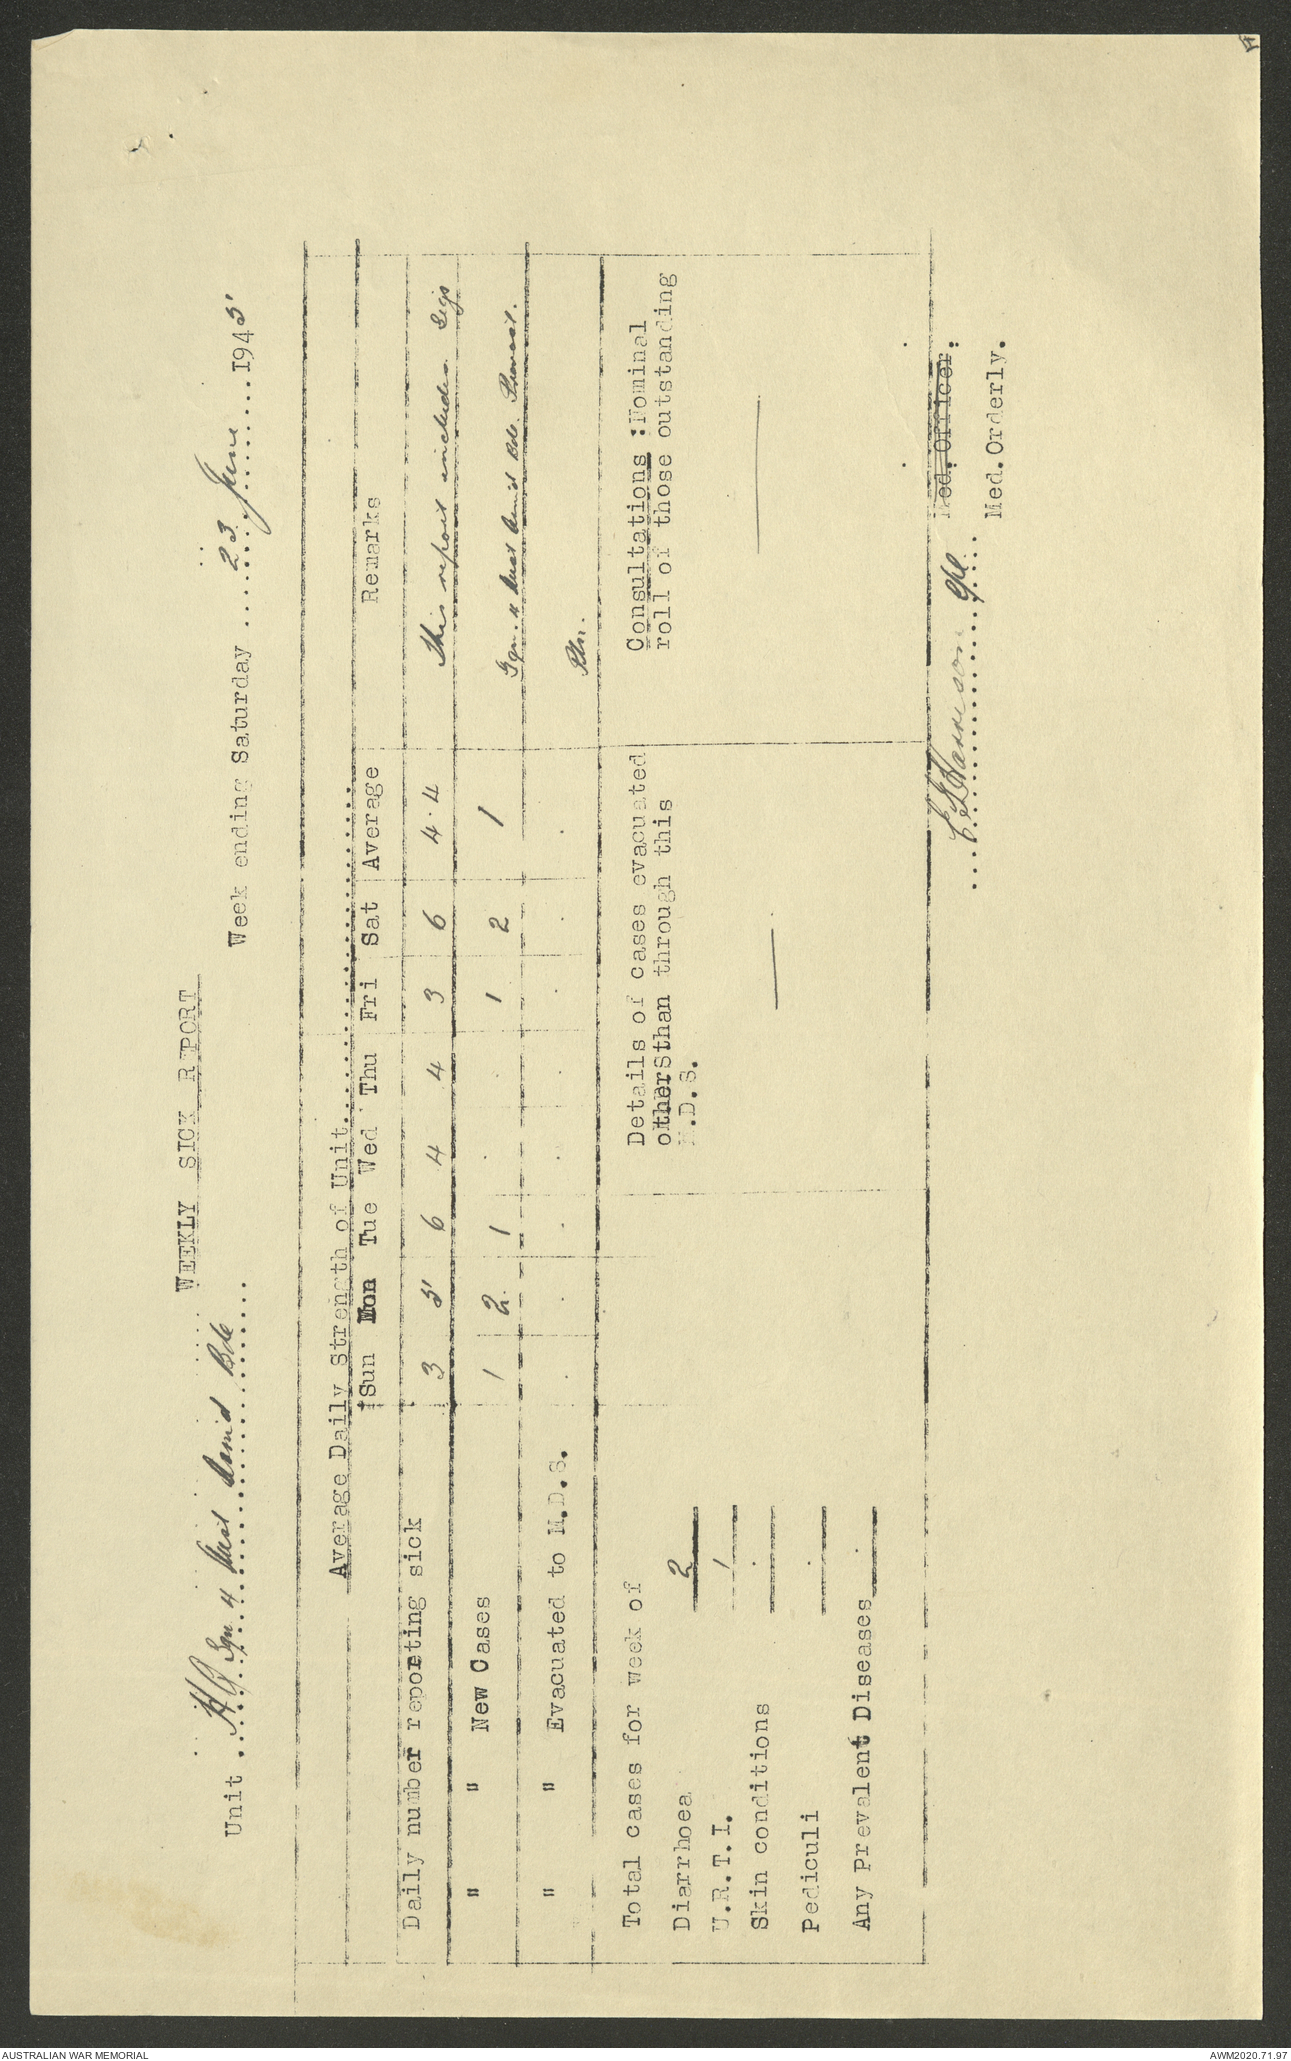 WEEKLY SICK REPORT
Unit ...H Q Sqn. 4 Aust Arm'd Bde...... Week ending Saturday .....23 June.....1945
Average Daily Strength of Unit..............................
Sun Mon Tue Wed Thu Fri Sat Average Remarks
Daily number reporting sick 3 5 6 4 4 3 6 4.4 This report includes Sigs
" " New Cases 1 2 1 . . 1 2 1 Sqn. 4 Aust Arm'd Bde. Provost.
" " Evacuated to M.D.S. . . . . . . . . Pltn.
Total cases for week of
Diarrhoea 2
U.R.T.I. 1
Skin conditions .
Pediculi .
Any Prevalent Diseases .
Details of cases evacuated
otherSthan through this
M.D.S.
—
Consultations :Nominal
roll of those outstanding
—
Med.Officer.
....E Harrison Cpl.... Med.Orderly.
AUSTRALIAN WAR MEMORIAL
AWM2020.71.97